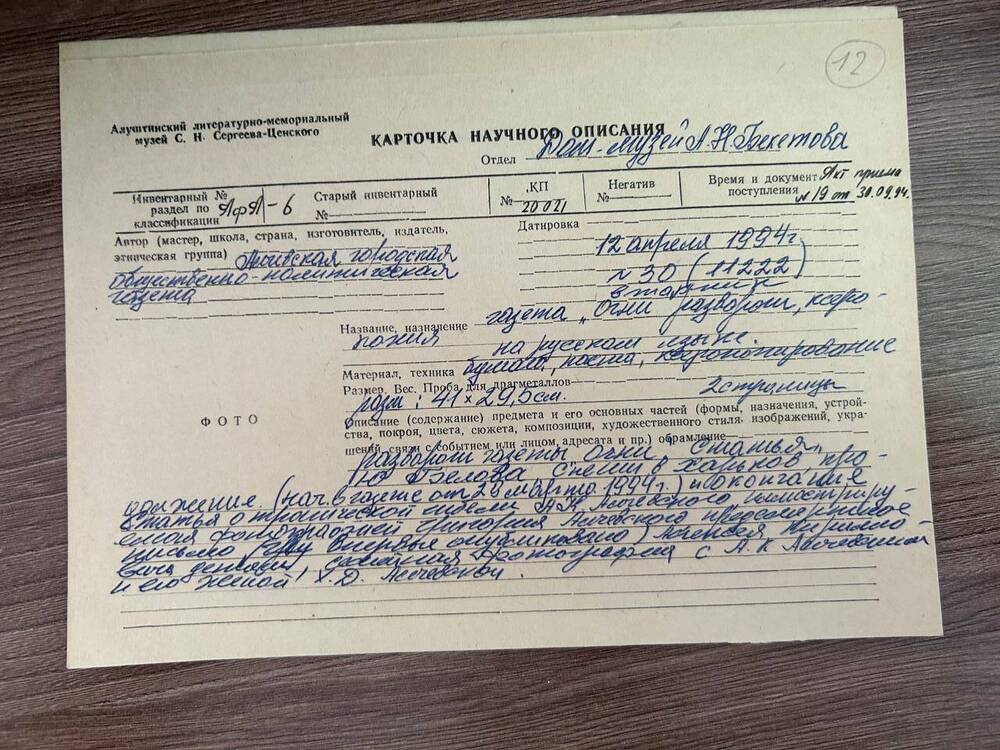 12
Алуштинский литературно-мемориальный
музей С. Н. Сергеева-Ценского
КАРТОЧКА НАУЧНОГО ОПИСАНИЯ
Отдел Дом-музей А.Н. Бекетова
Инвентарный №
раздел по
классификации АфА-6
Старый инвентарный
№
КП
№ 20021
Негатив
№
Время и документ Акт приема
поступления № 19 от 30.09.94.
Автор (мастер, школа, страна, изготовитель, издатель,
этническая группа) городская
общественно-политическая
газета
Датировка
12 апреля 1994г.
№ 30 (11222)
вторник
Название, назначение газета „Огни разворот, ксеро-
копия на русском языке.
Материал, техника бумага, паста, ксерокопирование
Размер. Вес. Проба для драгметаллов 2 страницы
разм: 41 × 29,5 см.
ФОТО
Описание (содержание) предмета и его основных частей (формы, назначения, устрой-
ства, покроя, цвета, сюжета, композиции, художественного стиля, изображений, укра-
шений, связи с событием или лицом, адресата и пр.) обрамление
разворот газеты „Огни", статья
Ю. Белова Спеши в Харьков, про-
должение (нач. в газете от 29 марта 1994г.) и окончание
статья о трагической гибели А.К. Алчевского иллюстриру-
емая фотографией Григория Алчевского предсмертное
письмо впервые опубликовано) Алексея Кирилло-
вича фотография с А.К. Алчевским
и его женой Х.Д. Алчевской.